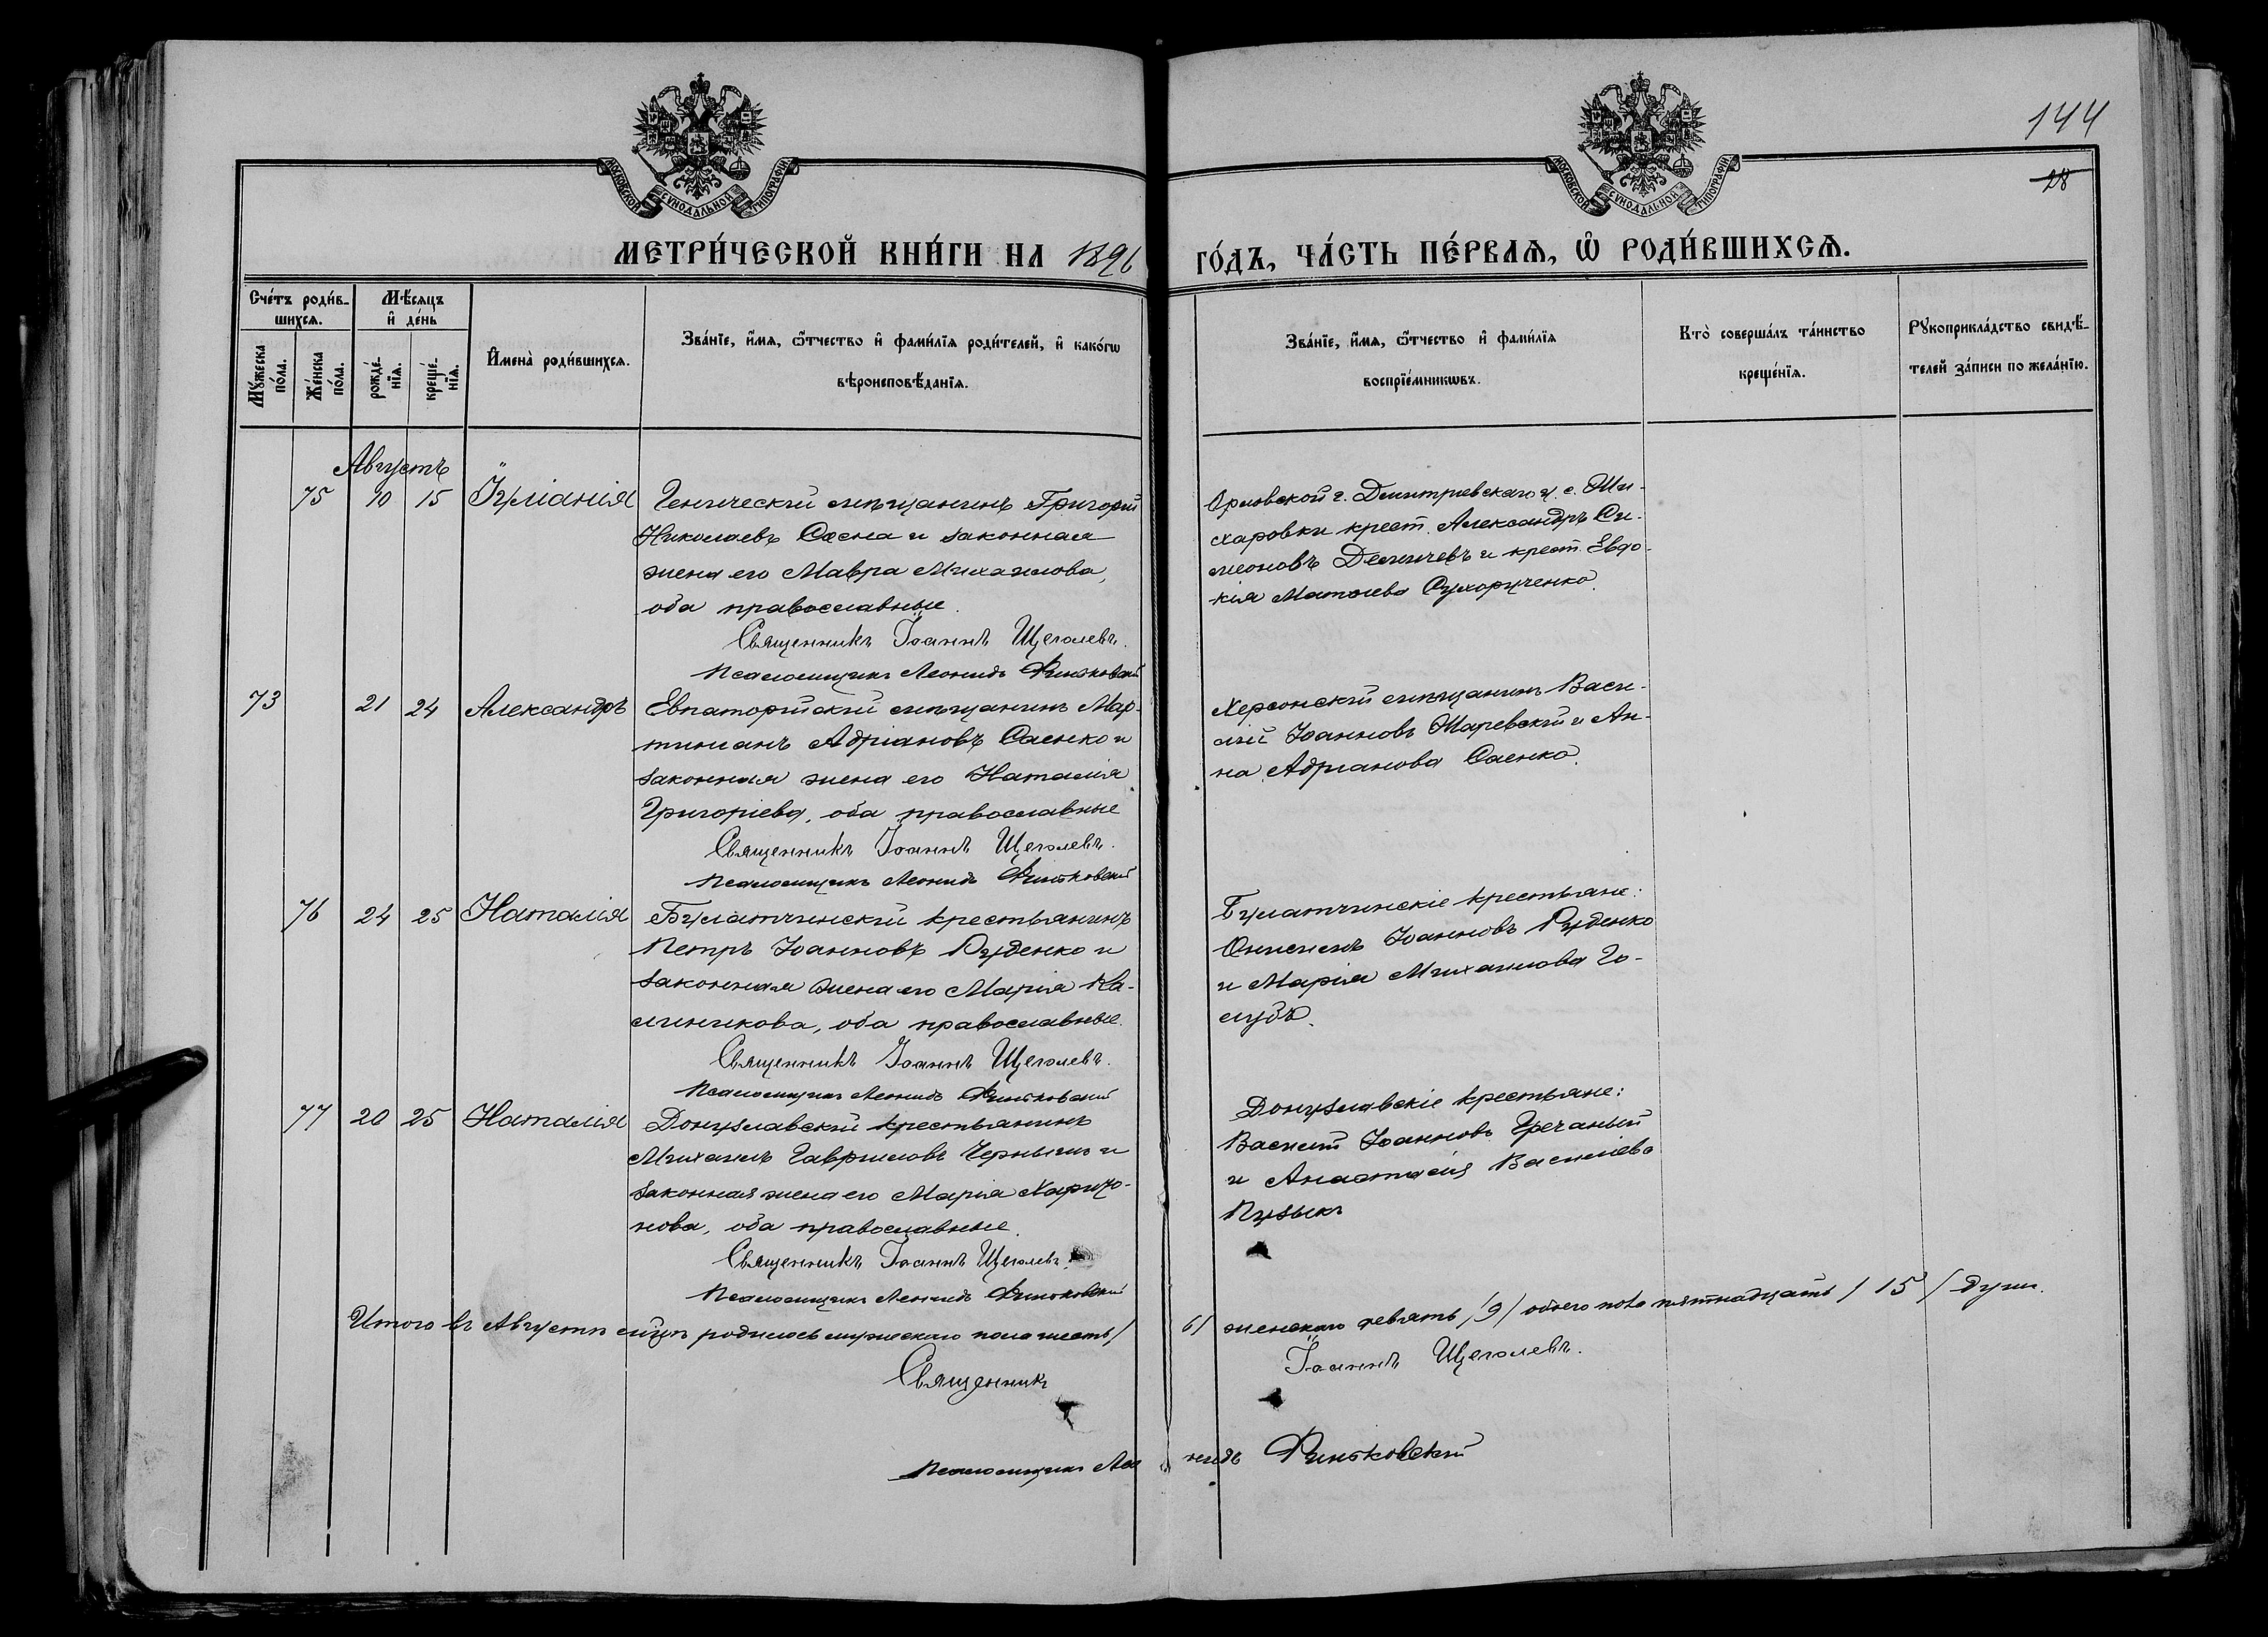 144
28
МОСКОВСКОЙ СѴНОДАЛЬНОЙ ТИПОГРАФІИ
МОСКОВСКОЙ СѴНОДАЛЬНОЙ ТИПОГРАФІИ
МЕТРИ́ЧЕСКОЙ КНИ́ГИ НА 1896 ГО́ДЪ, ЧА́СТЬ ПЕ́РВАѦ, Ѡ҆ РОДИ́ВШИХСѦ.
Сче́тъ роди́в-
шихсѧ.
Мѣ́сѧцъ
и҆ де́нь
Мꙋ́жеска
по́ла.
Же́нска
по́ла.
рожде́-
нїѧ.
креще́-
нїѧ.
И҆мена̀ роди́вшихсѧ.
Зва́нїе, и҆́мѧ, ѻ҆́тчество и҆ фами́лїѧ роди́телей, и҆ како́гѡ
вѣроисповѣ́данїѧ.
Зва́нїе, и҆́мѧ, ѻ҆́тчество и҆ фами́лїѧ
воспрїе́мникѡвъ.
Кто̀ соверша́лъ та́инство
креще́нїѧ.
Рꙋкоприкла́дство свидѣ́-
телей за́писи по жела́нїю.
Августъ
75 10 15 Іуліанія Геническій мѣщанинъ Григорій
Николаевъ Сосна и законная
жена его Мавра Михаилова,
оба православные.
Священникъ Іоаннъ Щеголевъ.
Псаломщикъ Леонидъ
Орловской г. Дмитріевскаго у. с.
крест. Александръ Си-
меоновъ и крест. Евдо-
кія Матѳіева Сухорученко.
73 21 24 Александръ Евпаторійскій мѣщанинъ Мар-
тиніанъ Адріановъ Саенко и
законная жена его Наталія
Григоріева, оба православные
Священникъ Іоаннъ Щеголевъ.
Псаломщикъ Леонидъ
Херсонскій мѣщанинъ Васи-
лій Іоанновъ и Ан-
на Адріанова Саенко.
76 24 25 Наталія Булатчинскій крестьянинъ
Петръ Іоанновъ Руденко и
законная жена его Марія Ка-
линикова, оба православные.
Священникъ Іоаннъ Щеголевъ.
Псаломщикъ Леонидъ
Булатчинскіе крестьяне:
Онисимъ Іоанновъ Руденко
и Марія Михаилова Го-
лубъ.
77 20 25 Наталія Донузлавскій крестьянинъ
Михаилъ Гавриловъ и
законная жена его Марія Харито-
нова, оба православные.
Священникъ Іоаннъ Щеголевъ.
Псаломщикъ Леонидъ
Донузлавскіе крестьяне:
Василій Іоанновъ Гречаный
и Анастасія Василіева
Пузыкъ
Итого въ Августѣ мѣсяцѣ родилось мужескаго пола шесть /6/ женскаго девять /9/ обоего пола пятнадцать /15/ душъ.
Священникъ Іоаннъ Щеголевъ.
Псаломщикъ Леонидъ